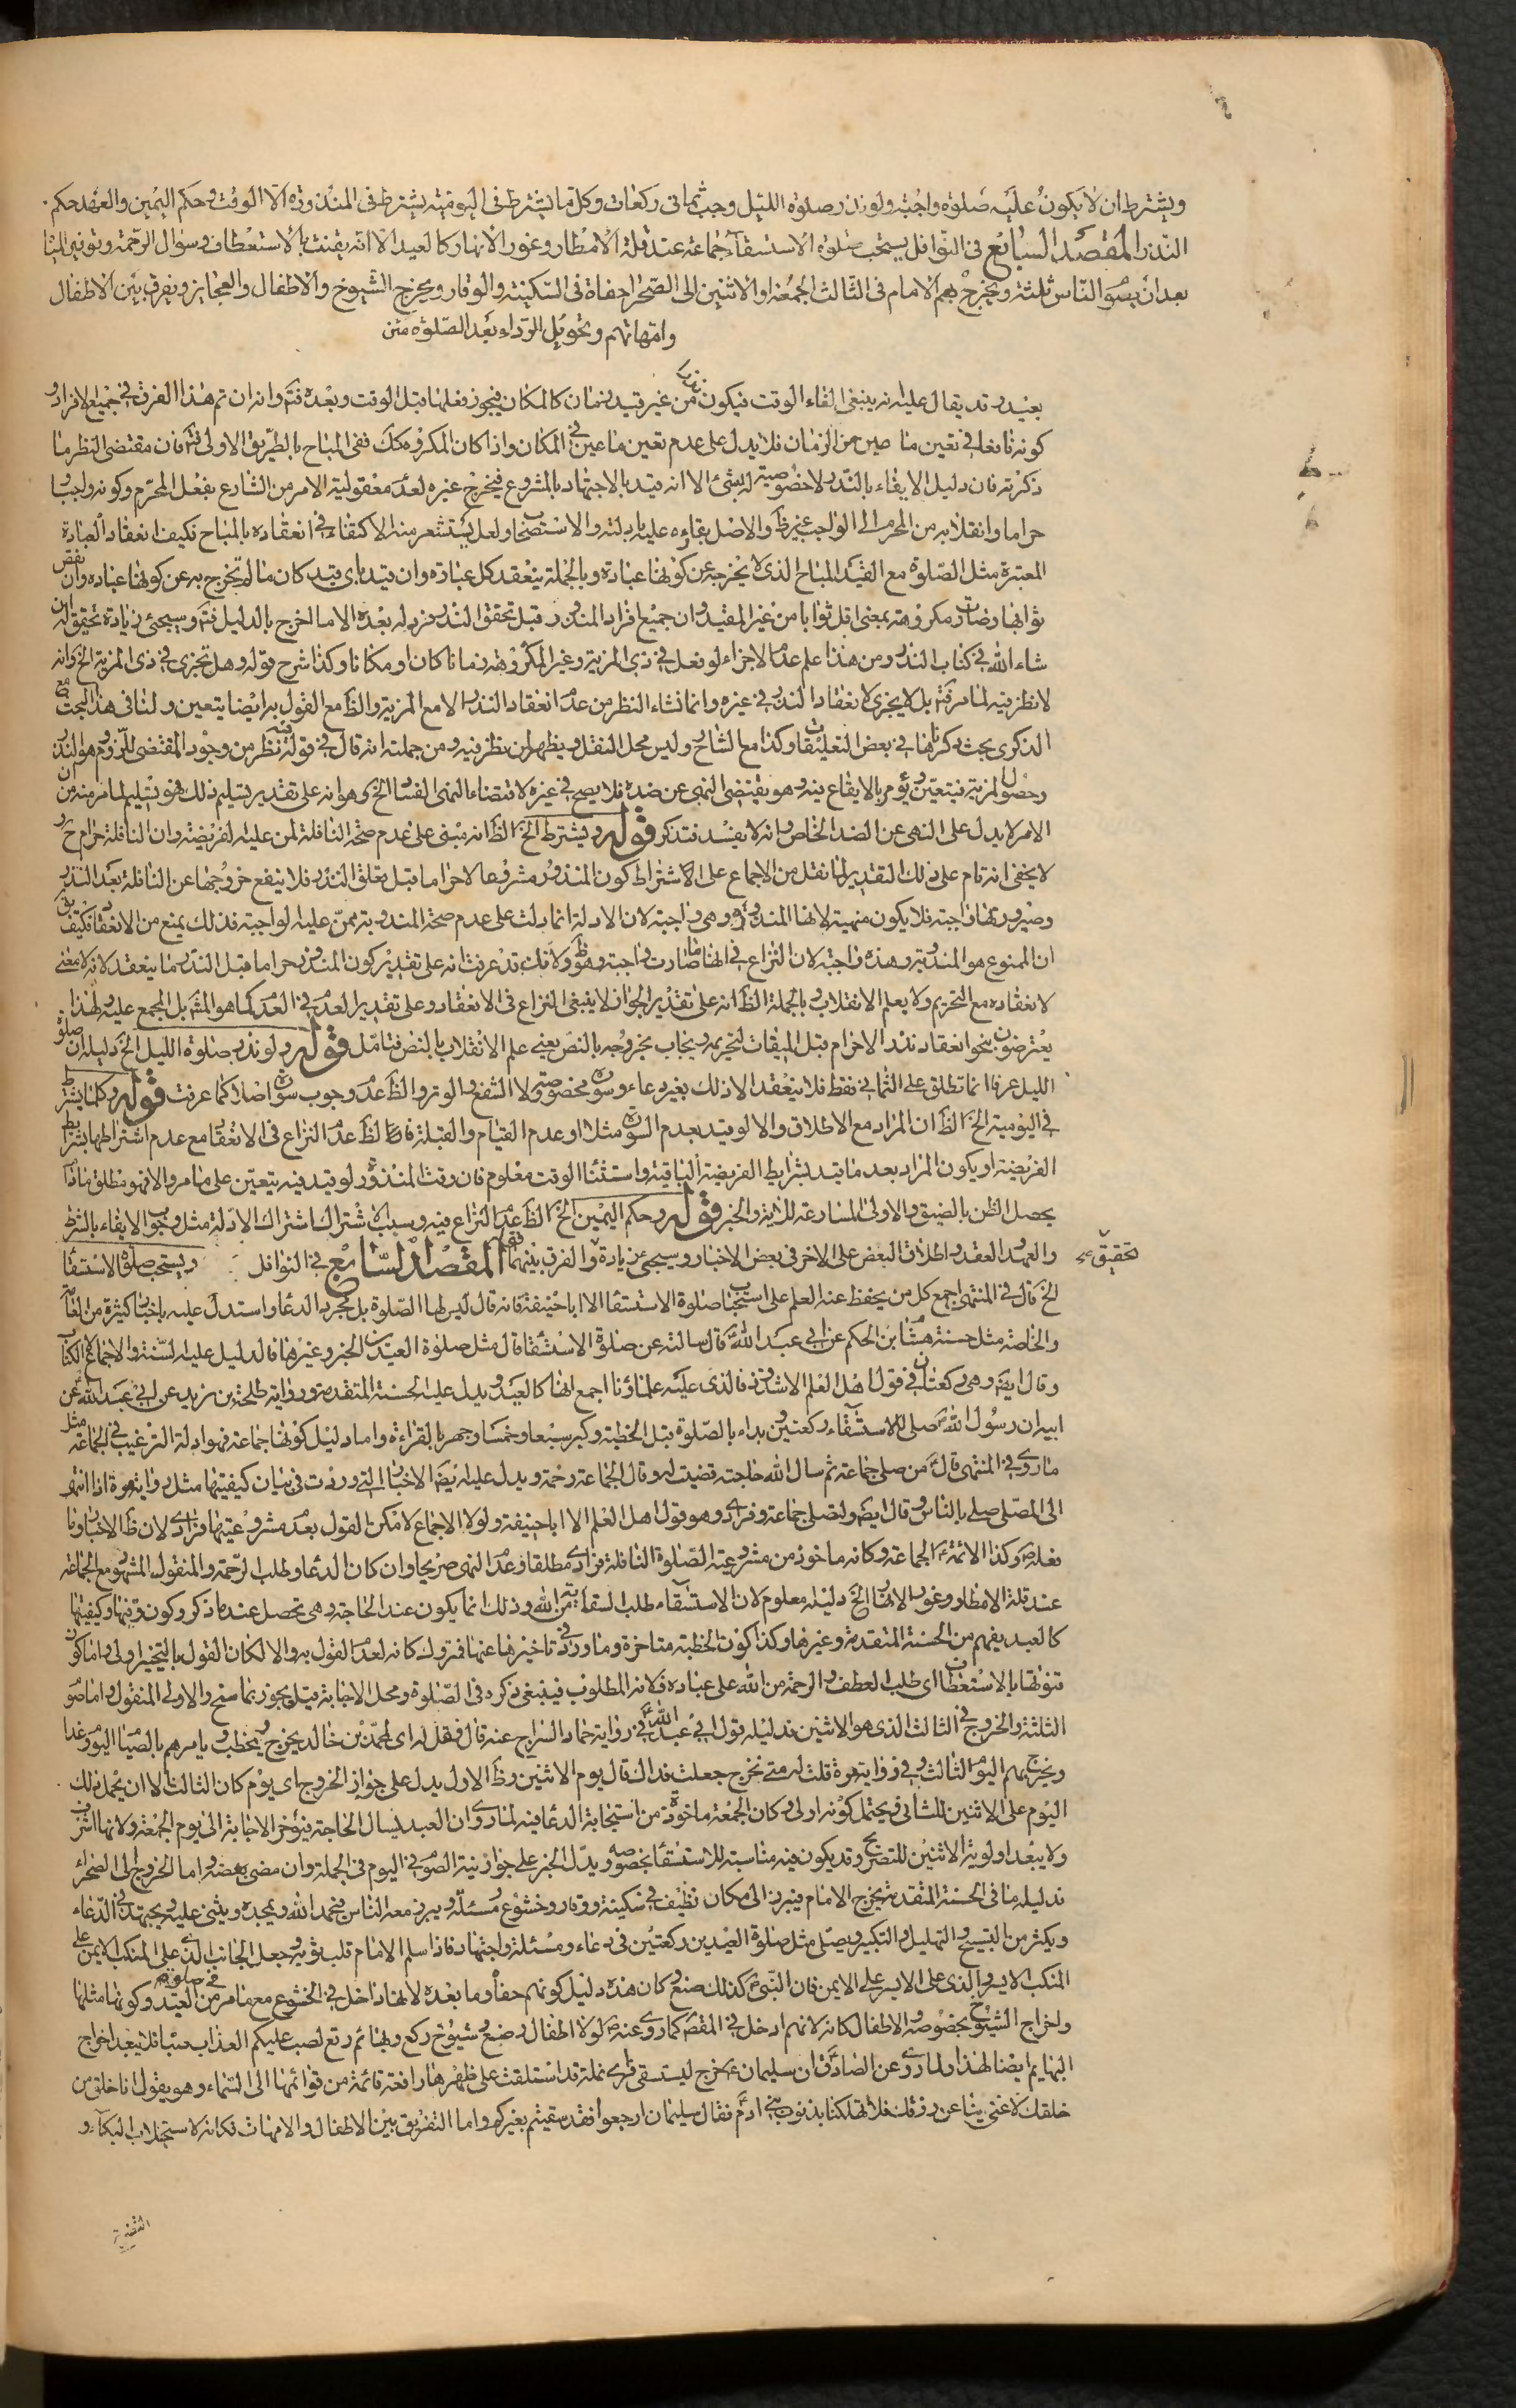 ويشترط ان لا يكون عليه صلوة واجبة ولو نذر صلوة الليل وجب ثماني ركعات وكل ما يشترط في اليومية يشترط في المنذورة الا الوقت وحكم اليمين والعهد حكم
النذر المقصد السابع في النوافل يستحب صلوة الاستسقاء جماعة عند قلة الامطار وغور الانهار كالعيد الا انه يقنت بالاستعطاف وسؤال الرحمة وتوفير المياه
بعد ان يصوم الناس ثلثة ويخرج بهم الامام في الثالث الجمعة او الاثنين الى الصحراء حفاة في السكينة والوقار ويخرج الشيوخ والاطفال والعجايز ويفرق بين الاطفال
وامهاتهم وتحويل الرداء بعد الصلوة متن
بعيد وقد يقال عليه انه ينبغي الغاء الوقت فيكون من غير قيد بزمان كالمكان فيجوز فعلها قبل الوقت وبعده فتم وانه ان تم هذا الفرق في جميع الافراد و
كونه نافعا في تعين ما عين من الزمان فلا يدل على عدم تعين ما عين في المكان واذا كان المكروه كك ففي المباح بالطريق الاولى فتم فان مقتضى النظر ما
ذكرته فان دليل الايفاء بالنذر لا خصوصية له بشئ الا انه قيد بالاجتهاد بالمشروع فيخرج غيره لعدم معقولية الامر من الشارع بفعل المحرم وكونه واجبا و
حراما وانقلابه من المحرم الى الواجب غير ظ والاصل بقاءه عليه بادلته والاستصحاب ولعل يستشعر منه الاكتفاء في انعقاده بالمباح فكيف انعقاد العبادة
المعتبرة مثل الصلوة مع القيد المباح الذي لا يخرجه عن كونها عبادة وبالجملة ينعقد كل عبادة وان قيد باي قيد كان ما لم تخرج به عن كونها عبادة وان نقص
ثوابها وصارت مكروهة بمعنى اقل ثوابا من غير المقيد وان جميع افراد المنذور قبل تحقق النذر فرد له بعده الا ما اخرج بالدليل فتم وسيجئ زيادة تحقيق له ان
شاء الله في كتاب النذر ومن هذا علم عدم الاجزاء لو فعل في ذي المزية وغير المكروهة زمانا كان او مكانا وكذا شرح قوله وهل تجزي في ذي المزية الخ وانه
لا نظر فيه لما مر فتم بل لا يجزي لانعقاد النذر في غيره وانما نشاء النظر من عدم انعقاد النذر الا مع المزية والظ مع القول به ايضا يتعين ولنا في هذا البحث مع
الذكرى بحث ذكرناها في بعض التعليقات وكذا مع الشارح وليس محل النقل ويظهر ان نظر فيه ومن جملته انه قال في قوله فيه نظر من وجود المقتضي للزوم وهو النذر
وحصول المزية فيتعين ويؤمر بالايقاع فيه وهو يقتضي النهي عن ضده فلا يصح في غيره لاقتضاء النهي الفساد الخ وهو انه على تقدير تسليم ذلك فهو تسليم لما مر منه من ان
الامر لا يدل على النهي عن الضد الخاص وانه لا يفسد فتذكر قوله ويشترط الخ الظ انه مبني على عدم صحة النافلة لمن عليه الفريضة وان النافلة حرام ح و
لا يخفى انه تام على ذلك التقدير لما نقل من الاجماع على اشتراط كون المنذور مشروعا لا حراما قبل تعلق النذر فلا ينفع خروجها عن النافلة بعد النذر
وصيرورتها واجبة فلا يكون منهية لانها المنذورة وهي واجبة لان الادلة انما دلت على عدم صحة المندوبة ممن عليه الواجبة فذلك يمنع من الانعقاد فكيف يقال
ان الممنوع هو المندوبة وهذه واجبة لان النزاع في انها ما صارت واجبة وهو ظ ولانك قد عرفت انه على تقدير كون المنذور حراما قبل النذر ما ينعقد لانه لا معنى
لانعقاده مع التحريم ولا يعلم الانقلاب وبالجملة الظ انه على تقدير الجواز لا ينبغي النزاع في الانعقاد وعلى تقدير العدم في العدم كما هو المش بل المجمع عليه ولهذا
يعترضون بنحو انعقاد نذر الاحرام قبل الميقات لتحريمه ويجاب بخروجه بالنص يعني علم الانقلاب بالنص فتامل قوله ولو نذر صلوة الليل الخ دليله ان صلوة
الليل عرفا انما تطلق على الثماني فقط فلا ينعقد الا ذلك بغير دعاء وسورة مخصوصتين ولا الشفع والوتر والظ عدم وجوب سورة اصلا كما عرفت قوله وكلما يشترط
في اليومية الخ الظ ان المراد مع الاطلاق والا لو قيد بعدم السورة مثلا او عدم القيام والقبلة فالظ عدم النزاع في الانعقاد مع عدم اشتراطها بشرايط
الفريضة او يكون المراد بعد ما قيد بشرايط الفريضة الباقية واستثناء الوقت معلوم فان وقت المنذور لو قيد فيه يتعين على ما مر والا فهو مطلق ما دام
يحصل الظن بالضيق والاولى المسارعة للاية والخبر قوله وحكم اليمين الخ الظ عدم النزاع فيه وسببه الاشتراك اشتراك الادلة مثل وجوب الايفاء بالشرط
والعهود والعقد واطلاق البعض على الاخر في بعض الاخبار وسيجئ زيادة والفرق بينهما فتم المقصد السابع في النوافل ويستحب صلوة الاستسقاء
تحقيق عـه
الخ قال في المنتهى اجمع كل من يحفظ عنه العلم على استحباب صلوة الاستسقاء الا ابا حنيفة فانه قال ليس لها الصلوة بل مجرد الدعاء واستدل عليه باخبار كثيرة من العامة
والخاصة مثل حسنة هشام بن الحكم عن ابي عبد الله ع قال سالته عن صلوة الاستسقاء قال مثل صلوة العيدين الخبر وغيرها فالدليل عليه السنة والاجماع بل الكتاب
وقال ايضا وهي ركعتان في قول اهل العلم الا شذوذ فالذي عليه علماؤنا اجمع انها كالعيد ويدل عليه الحسنة المتقدمة ورواية طلحة بن زيد عن ابي عبد الله ع عن
ابيه ان رسول الله ص صلى للاستسقاء ركعتين وبداء بالصلوة قبل الخطبة وكبر سبعا وخمسا وجهر بالقراءة واما دليل كونها جماعة فهو ادلة الترغيب في الجماعة مثل
ما روى في المنتهى قال ع من صلى جماعة ثم سال الله حاجته قضيت له وقال الجماعة رحمة ويدل عليه ايضا الاخبار التي وردت في بيان كيفيتها مثل رواية مرة اذا انتهى
الى المصلى صلى بالناس وقال ايضا ولتصلى جماعة وفرادى وهو قول اهل العلم الا ابا حنيفة ولولا الاجماع لامكن القول بعدم مشروعيتها فرادى لان ظ الاخبار وما
فعله ص وكذا الائمة ع الجماعة وكانه ماخوذ من مشروعية الصلوة النافلة فرادى مطلقا وعدم النهي صريحا وان كان الدعاء وطلب الرحمة والمنقول المشهور مع الجماعة
عند قلة الامطار وغور الانهار الخ دليله معلوم لان الاستسقاء طلب السقاية من الله وذلك انما يكون عند الحاجة وهي تحصل عند ما ذكر وكون وقتها وكيفيتها
كالعيد يفهم من الحسنة المتقدمة وغيرها وكذا كون الخطبة متاخرة وما ورد في تاخيرها عنها فمتروك كانه لعدم القول به والا لكان القول بالتخيير اولى واما كون
قنوتها بالاستعطاف اى طلب العطف والرحمة من الله على عباده فلانه المطلوب فينبغي ذكره في الصلوة ومحل الاجابة قيل ويجوز بما سنح والاولى المنقول واما صوم
الثلثة والخروج في الثالث الذي هو الاثنين فدليله قول ابي عبد الله ع في رواية حماد السراج عنه قال فقل له اى لمحمد بن خالد يخرج ويخطب ويامرهم بالصيام اليوم وغدا
ويخرج بهم اليوم الثالث وفي رواية مرة قلت له متى نخرج جعلت فداك قال يوم الاثنين وظ الاول يدل على جواز الخروج اى يوم كان الثالث الا ان يحمل ذلك
اليوم على الاثنين للثاني ويحتمل كونه اولى وكان الجمعة ماخوذة من استجابة الدعاء فيه لما روى ان العبد ليسال الحاجة فيؤخر الاجابة الى يوم الجمعة ولانها اشرف
ولا يبعد اولوية الاثنين للتصريح وقد يكون فيه مناسبة للاستسقاء بخصوصه ويدل الخبر على جواز نية الصوم في اليوم في الجملة وان مضى بعضه واما الخروج الى الصحراء
فدليله ما في الحسنة المتقدمة يخرج الامام فيبرز الى مكان نظيف في سكينة ووقار وخشوع ومسئلة ويبرز معه الناس فيحمد الله ويمجده ويثني عليه ويجتهد في الدعاء
ويكثر من التسبيح والتهليل والتكبير ويصلي مثل صلوة العيدين ركعتين في دعاء ومسئلة واجتهاد فاذا سلم الامام قلب ثوبه وجعل الجانب الذي على المنكب الايمن على
المنكب الايسر والذي على الايسر على الايمن فان النبي ص كذلك صنع وكان هذه دليل كونهم حفاة وما بعده لانها داخل في الخشوع مع ما مر من في صلوة العيد وكونها مثلها
واخراج الشيوخ بخصوصه والاطفال كانه لانهم ادخل في المقصود كما روى عنه ص لولا اطفال رضع وشيوخ ركع وبهائم رتع لصب عليكم العذاب صبا فلا يبعد اخراج
البهايم ايضا لهذا ولما روى عن الصادق ع ان سليمان ع خرج ليستسقي فراى نملة قد استلقت على ظهرها رافعة قائمة من قوائمها الى السماء وهو يقول انا خلق من
خلقك لا غنى بنا عن رزقك فلا تهلكنا بذنوب بني ادم فقال سليمان ارجعوا فقد سقيتم بغيركم واما التفريق بين الاطفال والامهات فكانه لاستجلاب البكاء و